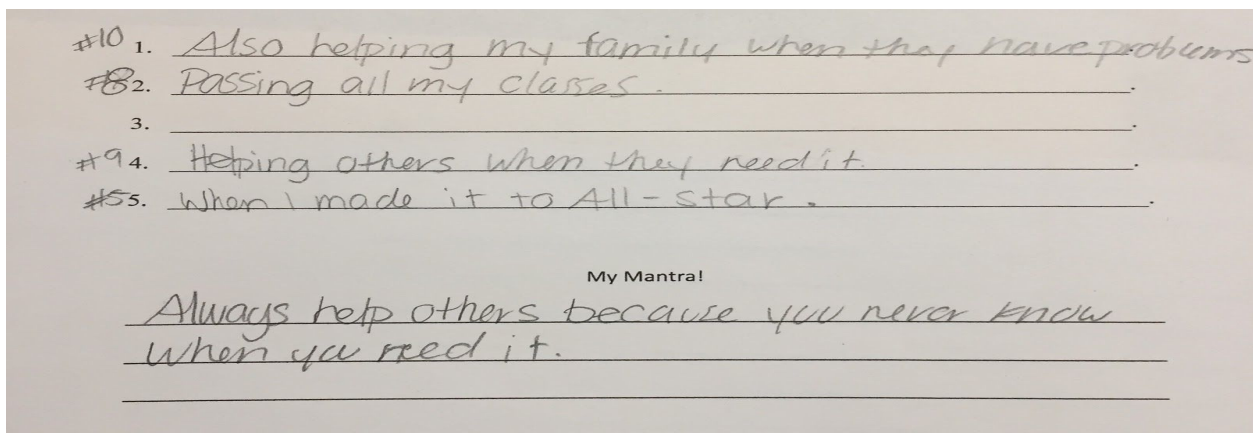 #10 1. Also helping my family when they have problems
#8 2. Passing all my classes.
3.
#9 4. Helping others when they need it.
#5 5. When I made it to All-Star.
My Mantra!
Always help others because you never know
when you need it.